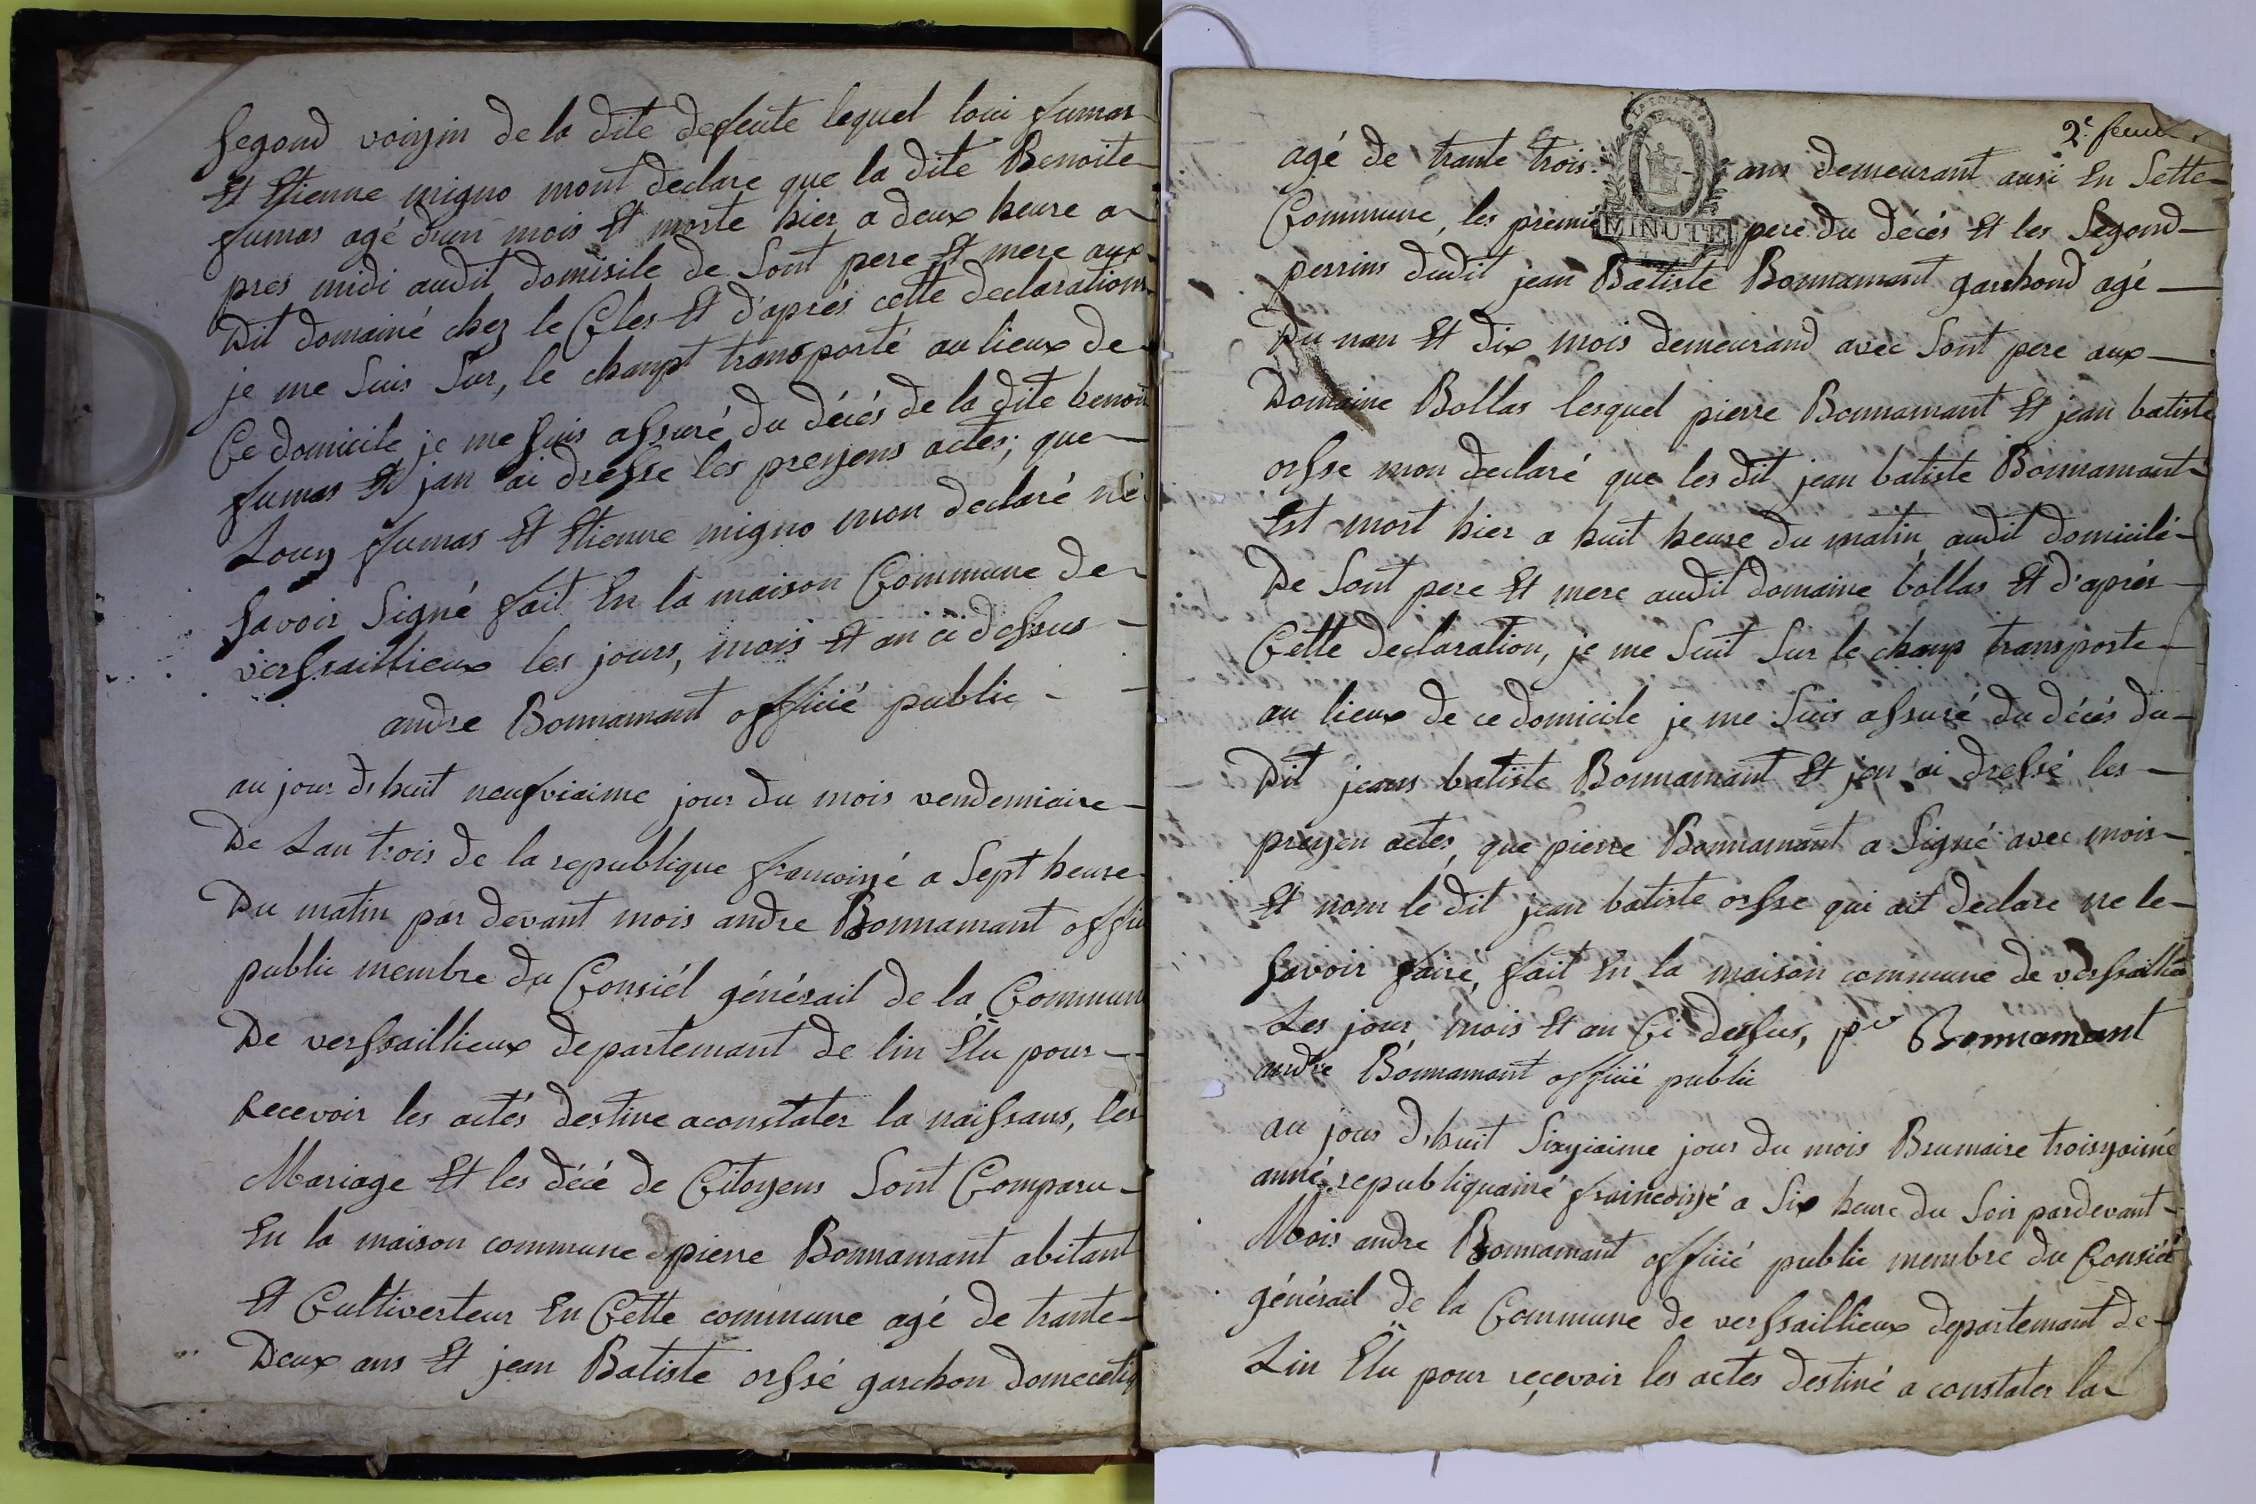 segond voiyin de la dite defeute lequel loui fumas
Et Etienne migno mont declare que la dite Benoite
fumas agé d'un mois Et morte hier a deux heure a
pres midi audit domisile de sont pere Et mere aux
Dit domainé chez le Cles Et d'aprés cette declarations
je me suis sur, le chanpt transporté au lieux de
Ce domicile je me suis assuré du décés de la dite benoit
fumas Et jan ai dresse les preyens actes; que
Louy fumas Et Etienne migno mon declaré né
savoir signé fait En la maison Commune de
versaillieux les jours, mois Et an ci dessus
andre Bonnamant officié public
au jour d'huit neufviaime jour du mois vendemiaire
De Lan trois de la republique francoiyé a sept heure
Du matin par devant mois andre Bonnamant offici
public membre du Consiél générail de la Commune
De versaillieux departemant de lin Elu pour
recevoir les actés destine aconstater la naissans, les
Mariage Et les décé de Citoyens sont Comparu
En la maison commune pierre Bonnamant abitant
Et Cultiverteur En Cette commune agé de trante
Deux ans Et jean Batiste orssé garchon domecetiq
2e feuil
agé de trante trois ans demeurant ausi En sette
MINUTE
Commune, les premié pere du décés Et les segond
perrins dudit jean Batiste Bonnamant garkond agé
Du nan Et dix mois demeurand avec sont pere aux
Domaine Bollas lesquel pierre Bonnamant Et jean batiste
orsse mon declaré que les dit jean batiste Bonnamant
Est mort hier a huit heure du matin audit domicilé
De sont pere Et mere audit domaine bollas Et d'aprés
Cette declaration, je me suit sur le champ transporte
au lieux de ce domicile je me suis assuré du décés du
Dit jeans batiste Bonnamant Et jen ai dressé les
preyen actes, que pierre Bonnamant a signé avec mois
Et nom le dit jean batiste orsse qui ait declare ne le
savoir fairé, fait En la maison commune de versaillieu
Les jour, mois Et an Ci dessus, pre Bonnamant
andre Bonnamant officié public
au jour d'huit sixyiaime jour du mois Brumaire troisyaimé
anné republiquainé fraincoiyé a six heure du soir pardevant
Mois andre Bonnamant officié public membre du Consiél
générail de la Commune de versaillieux departemant de
Lin Elu pour reçevoir les actes destiné a constater la